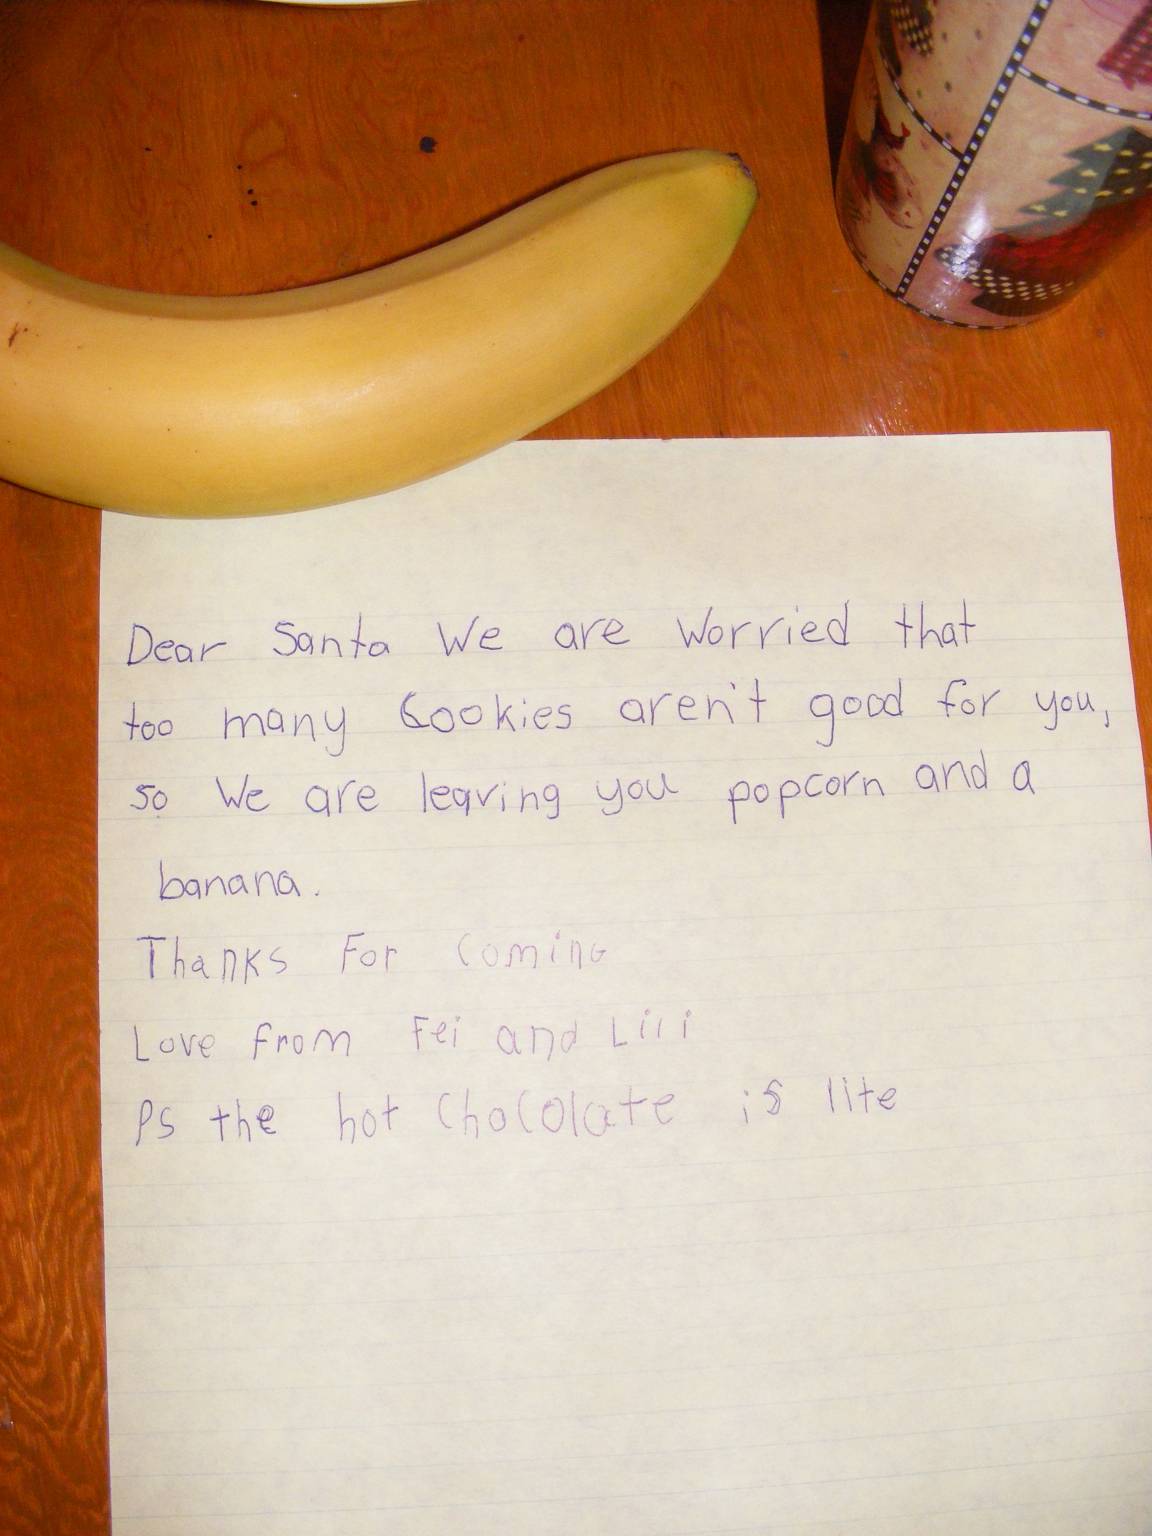 Dear Santa We are Worried that
too many Cookies aren't good for you,
so We are leaving you popcorn and a
banana.
Thanks For Coming
Love from Fei and Lili
Ps the hot Chocolate is lite